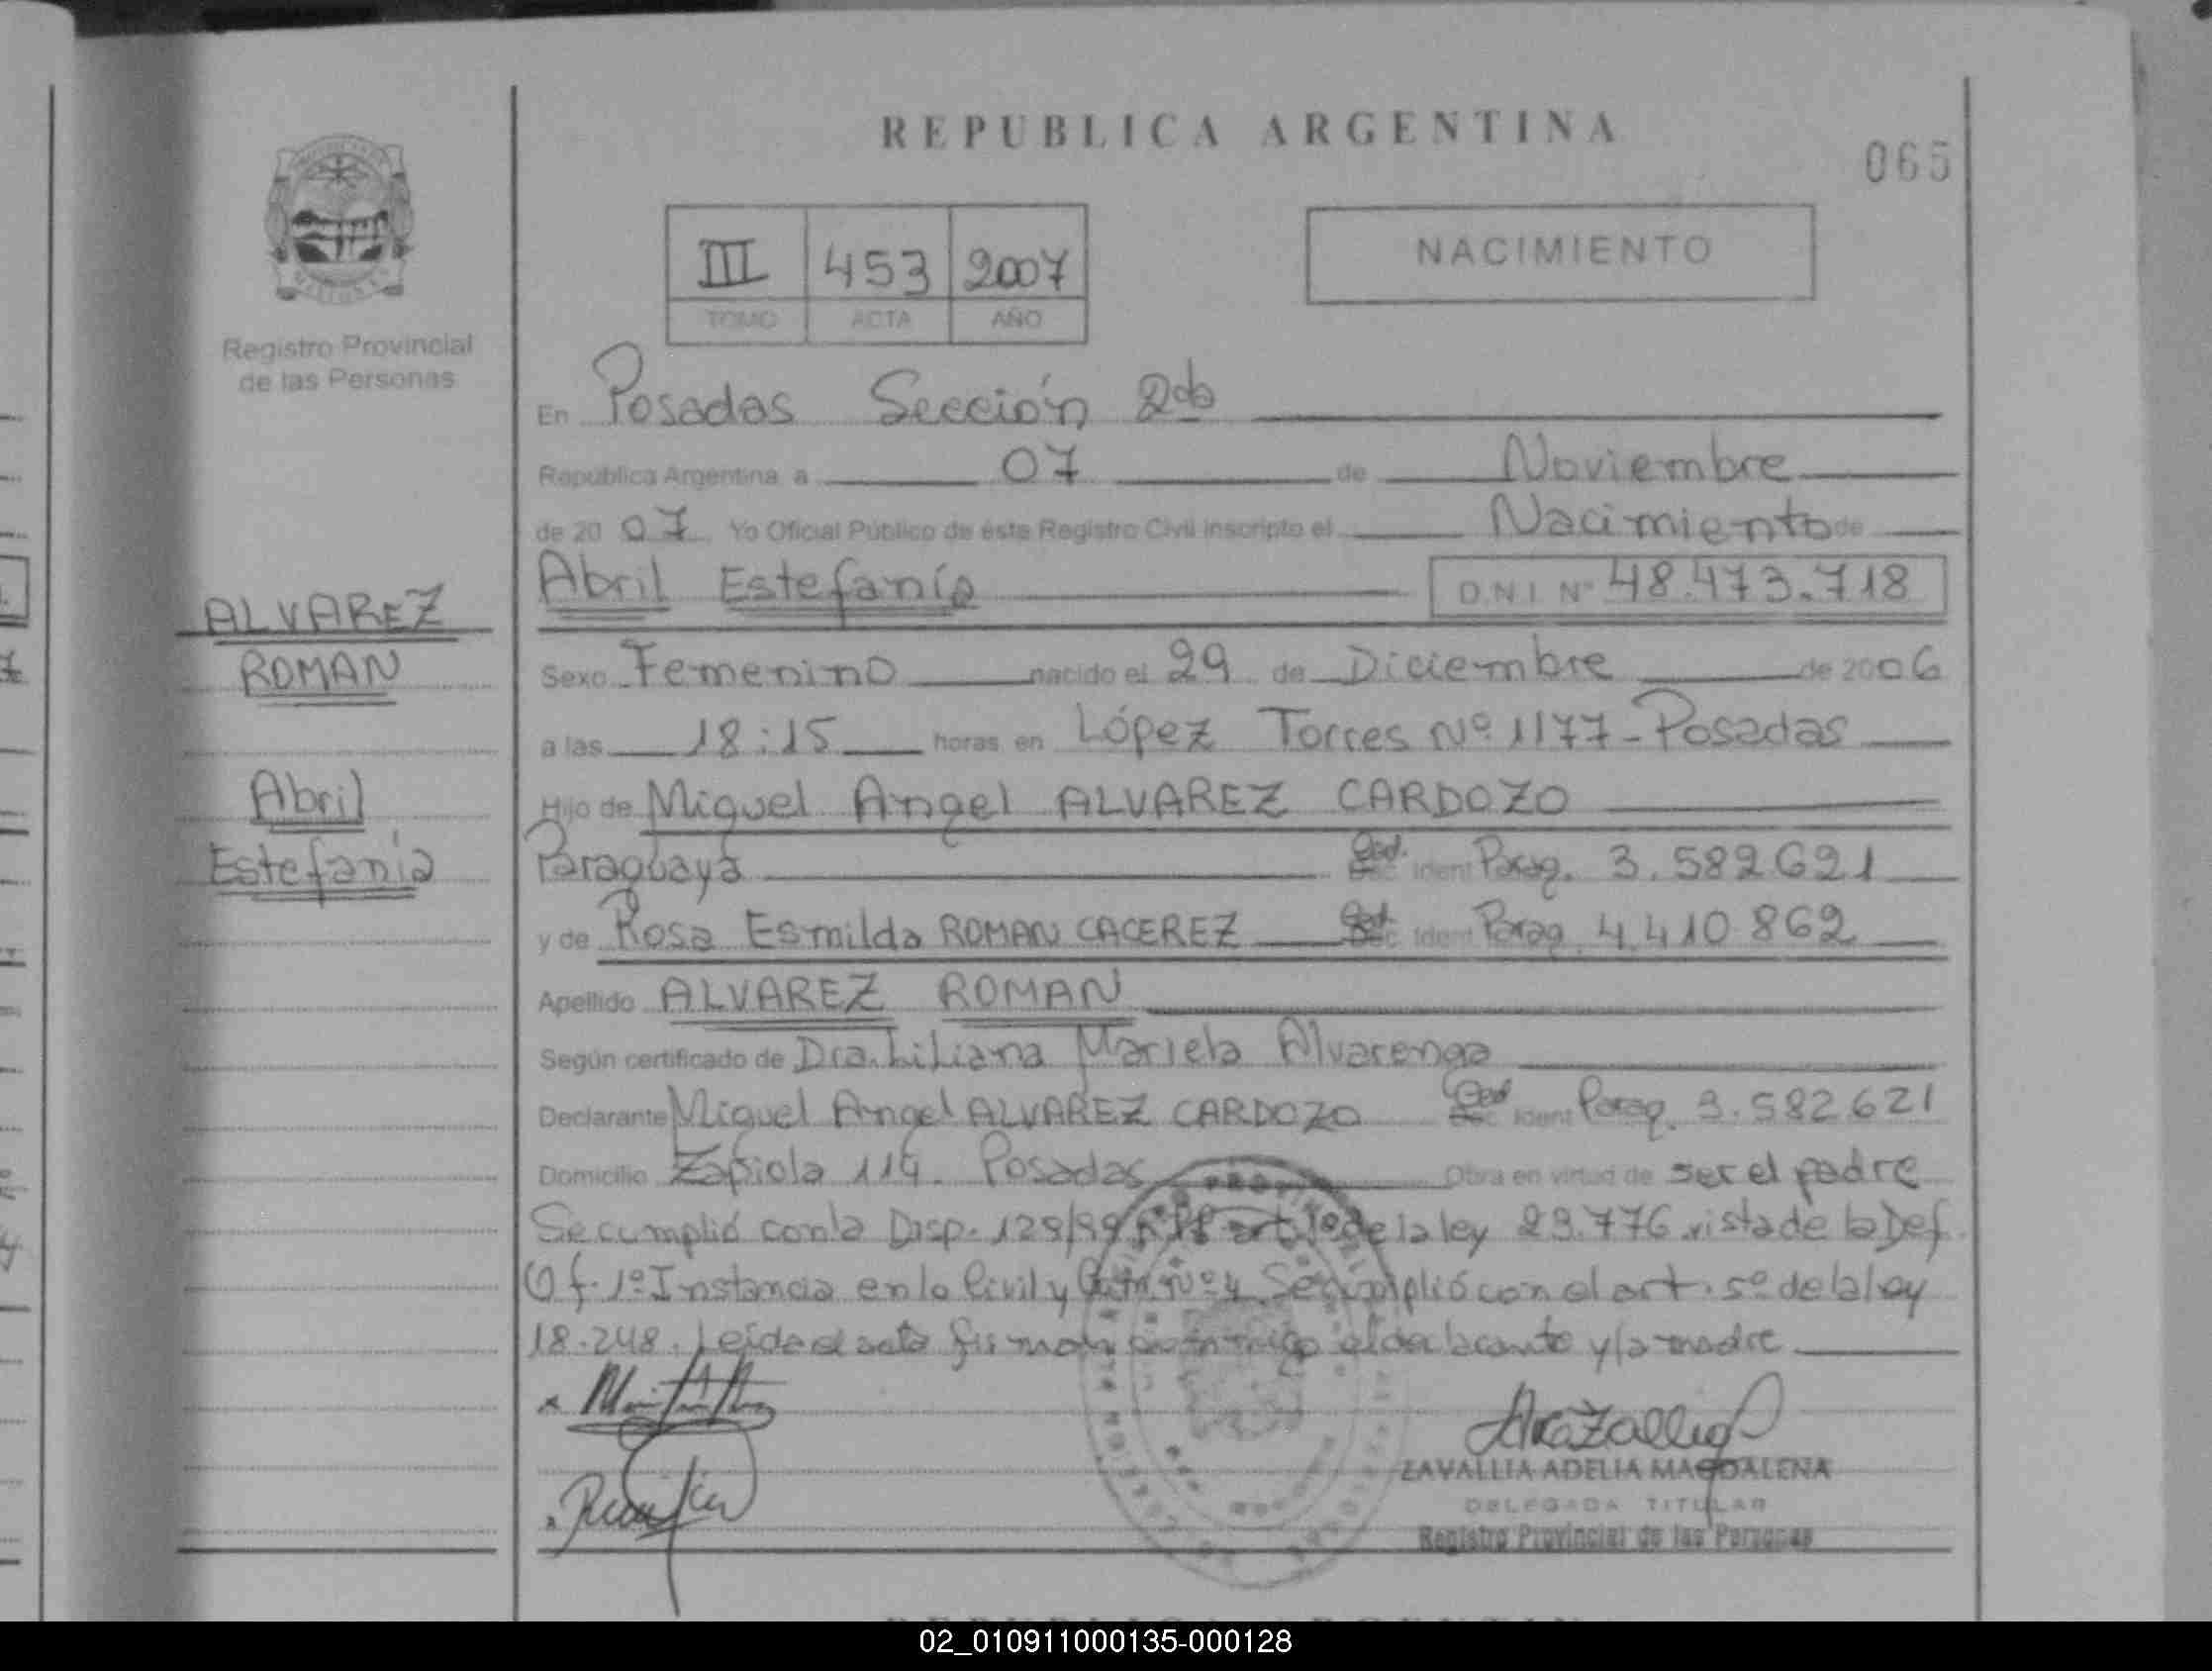 REPUBLICA ARGENTINA
065
III 453 2007
TOMO ACTA AÑO
NACIMIENTO
Registro Provincial
de las Personas
ALVAREZ
ROMAN
Abril
Estefanía
En Posadas Sección 2da
República Argentina a 07 de Noviembre
de 20 07 Yo Oficial Público de éste Registro Civil inscripto el Nacimiento de
Abril Estefanía D.N.I Nº 48.473.718
Sexo Femenino nacido el 29 de Diciembre de 2006
a las 18:15 horas en López Torres Nº 1177-Posadas
Hijo de Miguel Angel ALVAREZ CARDOZO
Paraguaya Ced. Ident Parag. 3.582621
y de Rosa Esmilda ROMAN CACEREZ Ced. Ident Parag. 4.410.862
Apellido ALVAREZ ROMAN
Según certificado de Dra. Liliana Mariela Alvarenga
Declarante Miguel Angel ALVAREZ CARDOZO Ced Ident Parag. 3.582.621
Domicilio Zapiola 114. Posadas Obra en virtud de ser el padre
Se cumplió con la Disp. 129/99 art 1º de la ley 23.776 vista de la Def.
Of. 1º Instancia en lo Civil y Nº 4 Se cumplió con el art. 5º de la ley
18.248. Leída el acta firman conmigo el declarante y la madre
ZAVALLIA ADELIA MAGDALENA
DELEGADA TITULAR
Registro Provincial de las Personas
02_010911000135-000128